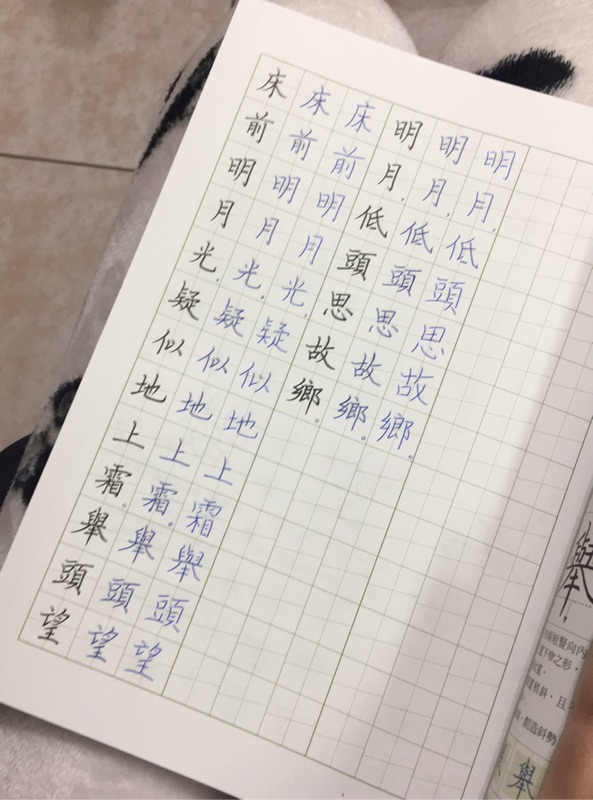 床前明月光，疑似地上霜。舉頭望
床前明月光，疑似地上霜。舉頭望
床前明月光，疑似地上霜舉頭望
明月，低頭思故鄉。
明月，低頭思故鄉。
明月，低頭思故鄉。
舉
豎向內
下窄之形，
稍斜，且
創造斜勢
舉